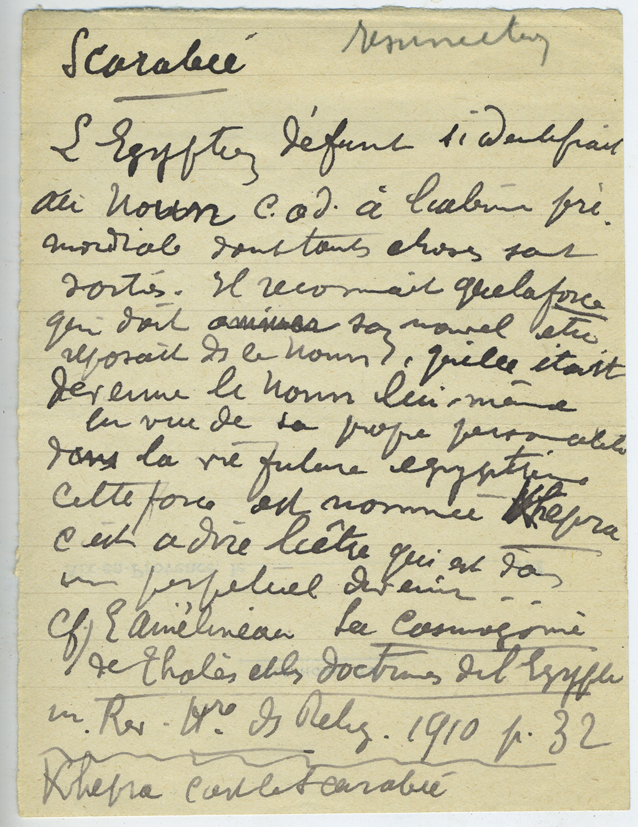 resurrection
Scarabée
L'Egyptien défunt s'identifiait
au Noun c.a.d. à l'abîme pri-
mordiale dont toutes choses sont
sorties. Il reconnait que la force
qui doit animer son nouvel être
reposait ds le Noun, qu'elle était
devenue le Noun lui-même
en vue de sa propre personnalité
dans la vie future egyptienne
Cette force est nommée Khepra
c'est a dire l'être qui est dans
un perpetuel devenir..
cf) E Amélineau La Cosmogonie
de Thalès et les doctrines de l'Egypte
in. Rev. Hre ds Relig. 1910 p. 32
Khepra c'est le Scarabée